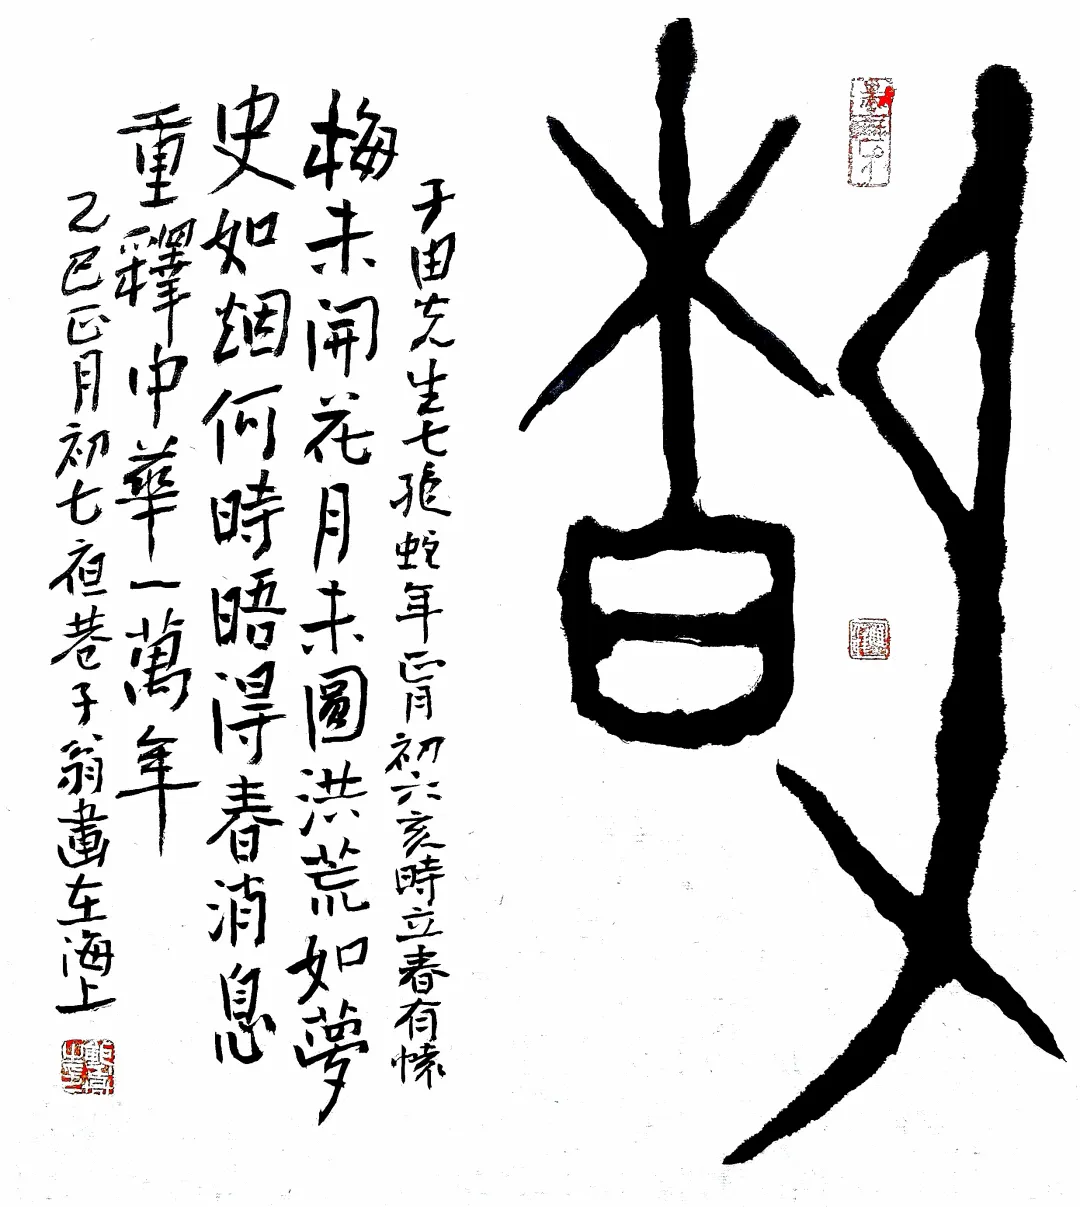 子由先生七绝蛇年正月初六亥時立春有愫
梅未開花月未圓洪荒如夢
史如烟何時晤得春消息
重釋中華一萬年
乙巳正月初七夜巷子翁畫在海上